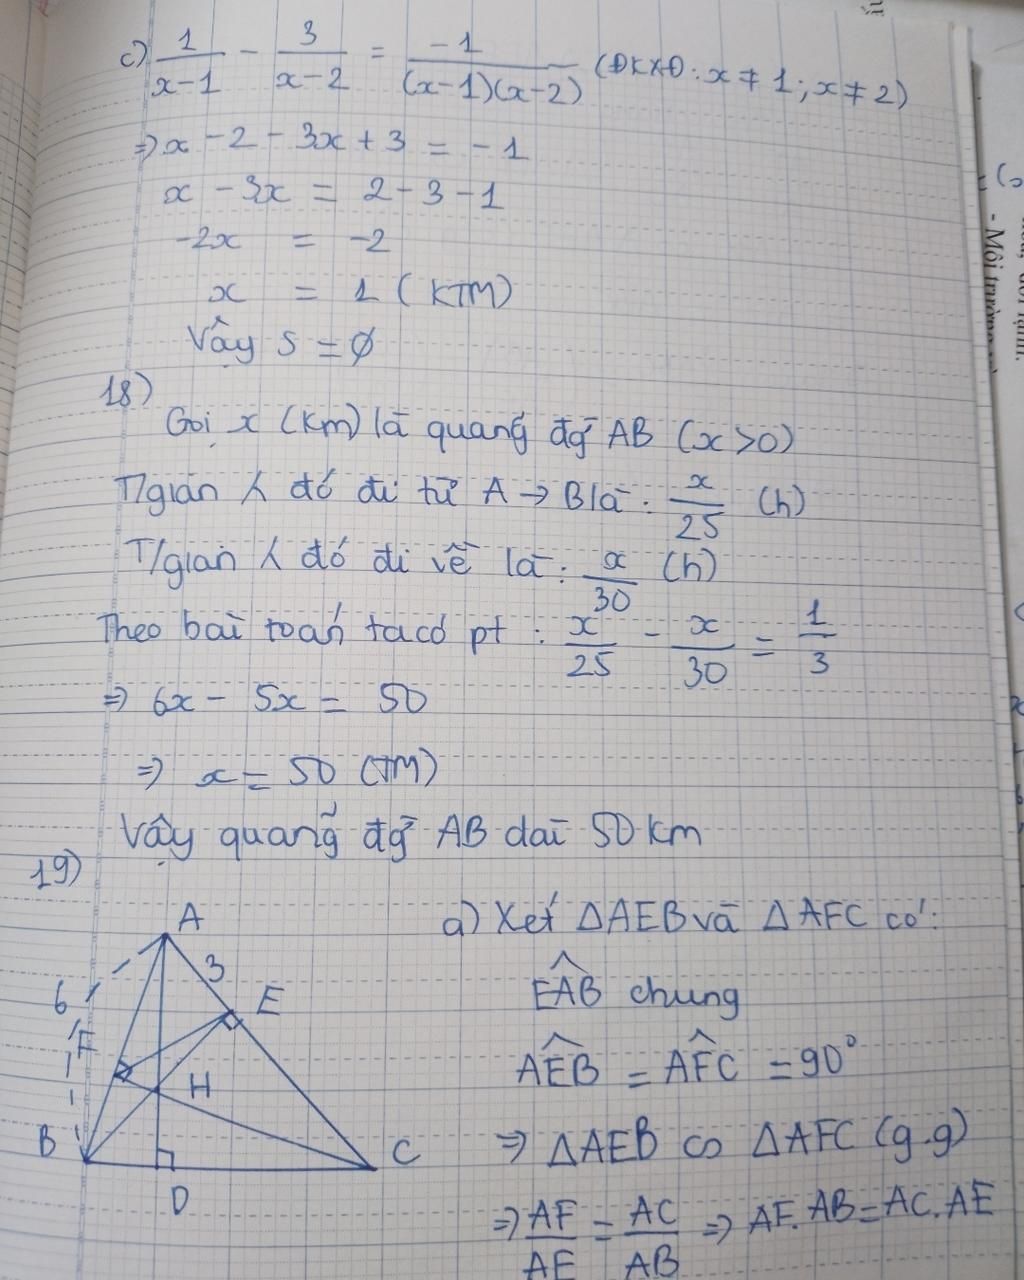 c) 1/(x-1) - 3/(x-2) = -1/((x-1)(x-2)) (ĐKXĐ: x ≠ 1; x ≠ 2)
⇒ x - 2 - 3x + 3 = -1
x - 3x = 2 - 3 - 1
-2x = -2
x = 1 (KTM)
Vậy S = ∅
18)
Gọi x (km) là quãng đg̀ AB (x>0)
T/gian λ đó đi từ A → B là: x/25 (h)
T/gian λ đó đi về là: x/30 (h)
Theo bài toán ta có pt: x/25 - x/30 = 1/3
⇒ 6x - 5x = 50
⇒ x = 50 (TM)
Vậy quãng đg̀ AB dài 50 km
19)
A
3
E
6
F
H
B
C
D
a) Xét ΔAEB và ΔAFC có:
EÂB chung
AÊB = AF̂C = 90°
⇒ ΔAEB ∽ ΔAFC (g.g)
⇒ AF/AE = AC/AB ⇒ AF. AB = AC. AE